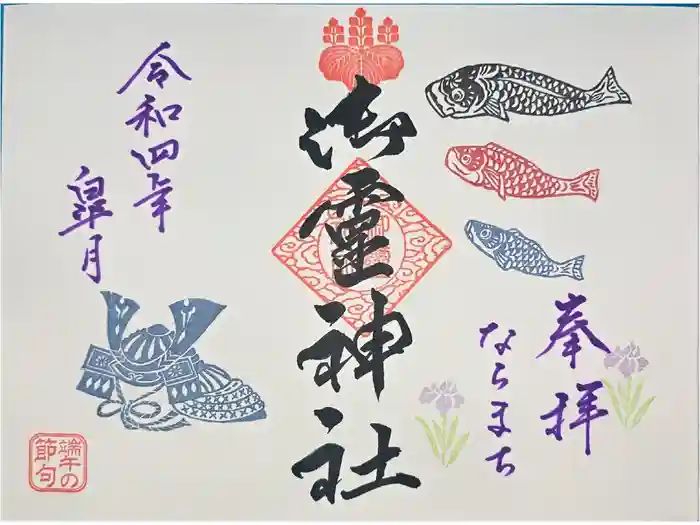 奉拝
ならまち
御霊神社
令和四年
皐月
端午の
節句